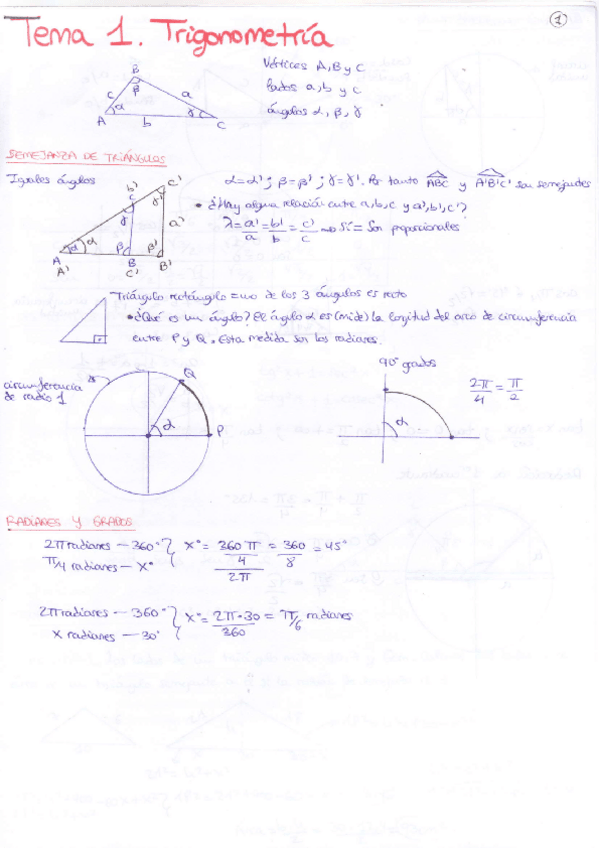 1
Tema 1. Trigonometría
Vértices A, B y C
lados a, b y c
ángulos α, β, γ
B
β
c
a
A
α
b
γ
C
SEMEJANZA DE TRIÁNGULOS
Iguales ángulos
α=α' ; β=β' ; γ=γ'. Por tanto ABC y A'B'C' son semejantes
• ¿Hay alguna relación entre a, b, c y a', b', c'?
λ = a'/a = b'/b = c'/c → Sí = Son proporcionales
b'
C'
C
γ'
γ
a'
α
α
β
β'
A
A'
B
C'
B'
Triángulo rectángulo = uno de los 3 ángulos es recto
• ¿Qué es un ángulo? El ángulo α es (mide) la longitud del arco de circunferencia
entre P y Q. Esta medida son los radianes.
circunferencia
de radio 1
Q
α
P
90° grados
α
2π/4 = π/2
RADIANES Y GRADOS
2π radianes — 360°
π/4 radianes — X°
X° = (360 π/4)/2π = 360/8 = 45°
2π radianes — 360°
X radianes — 30°
X° = 2π·30/360 = π/6 radianes